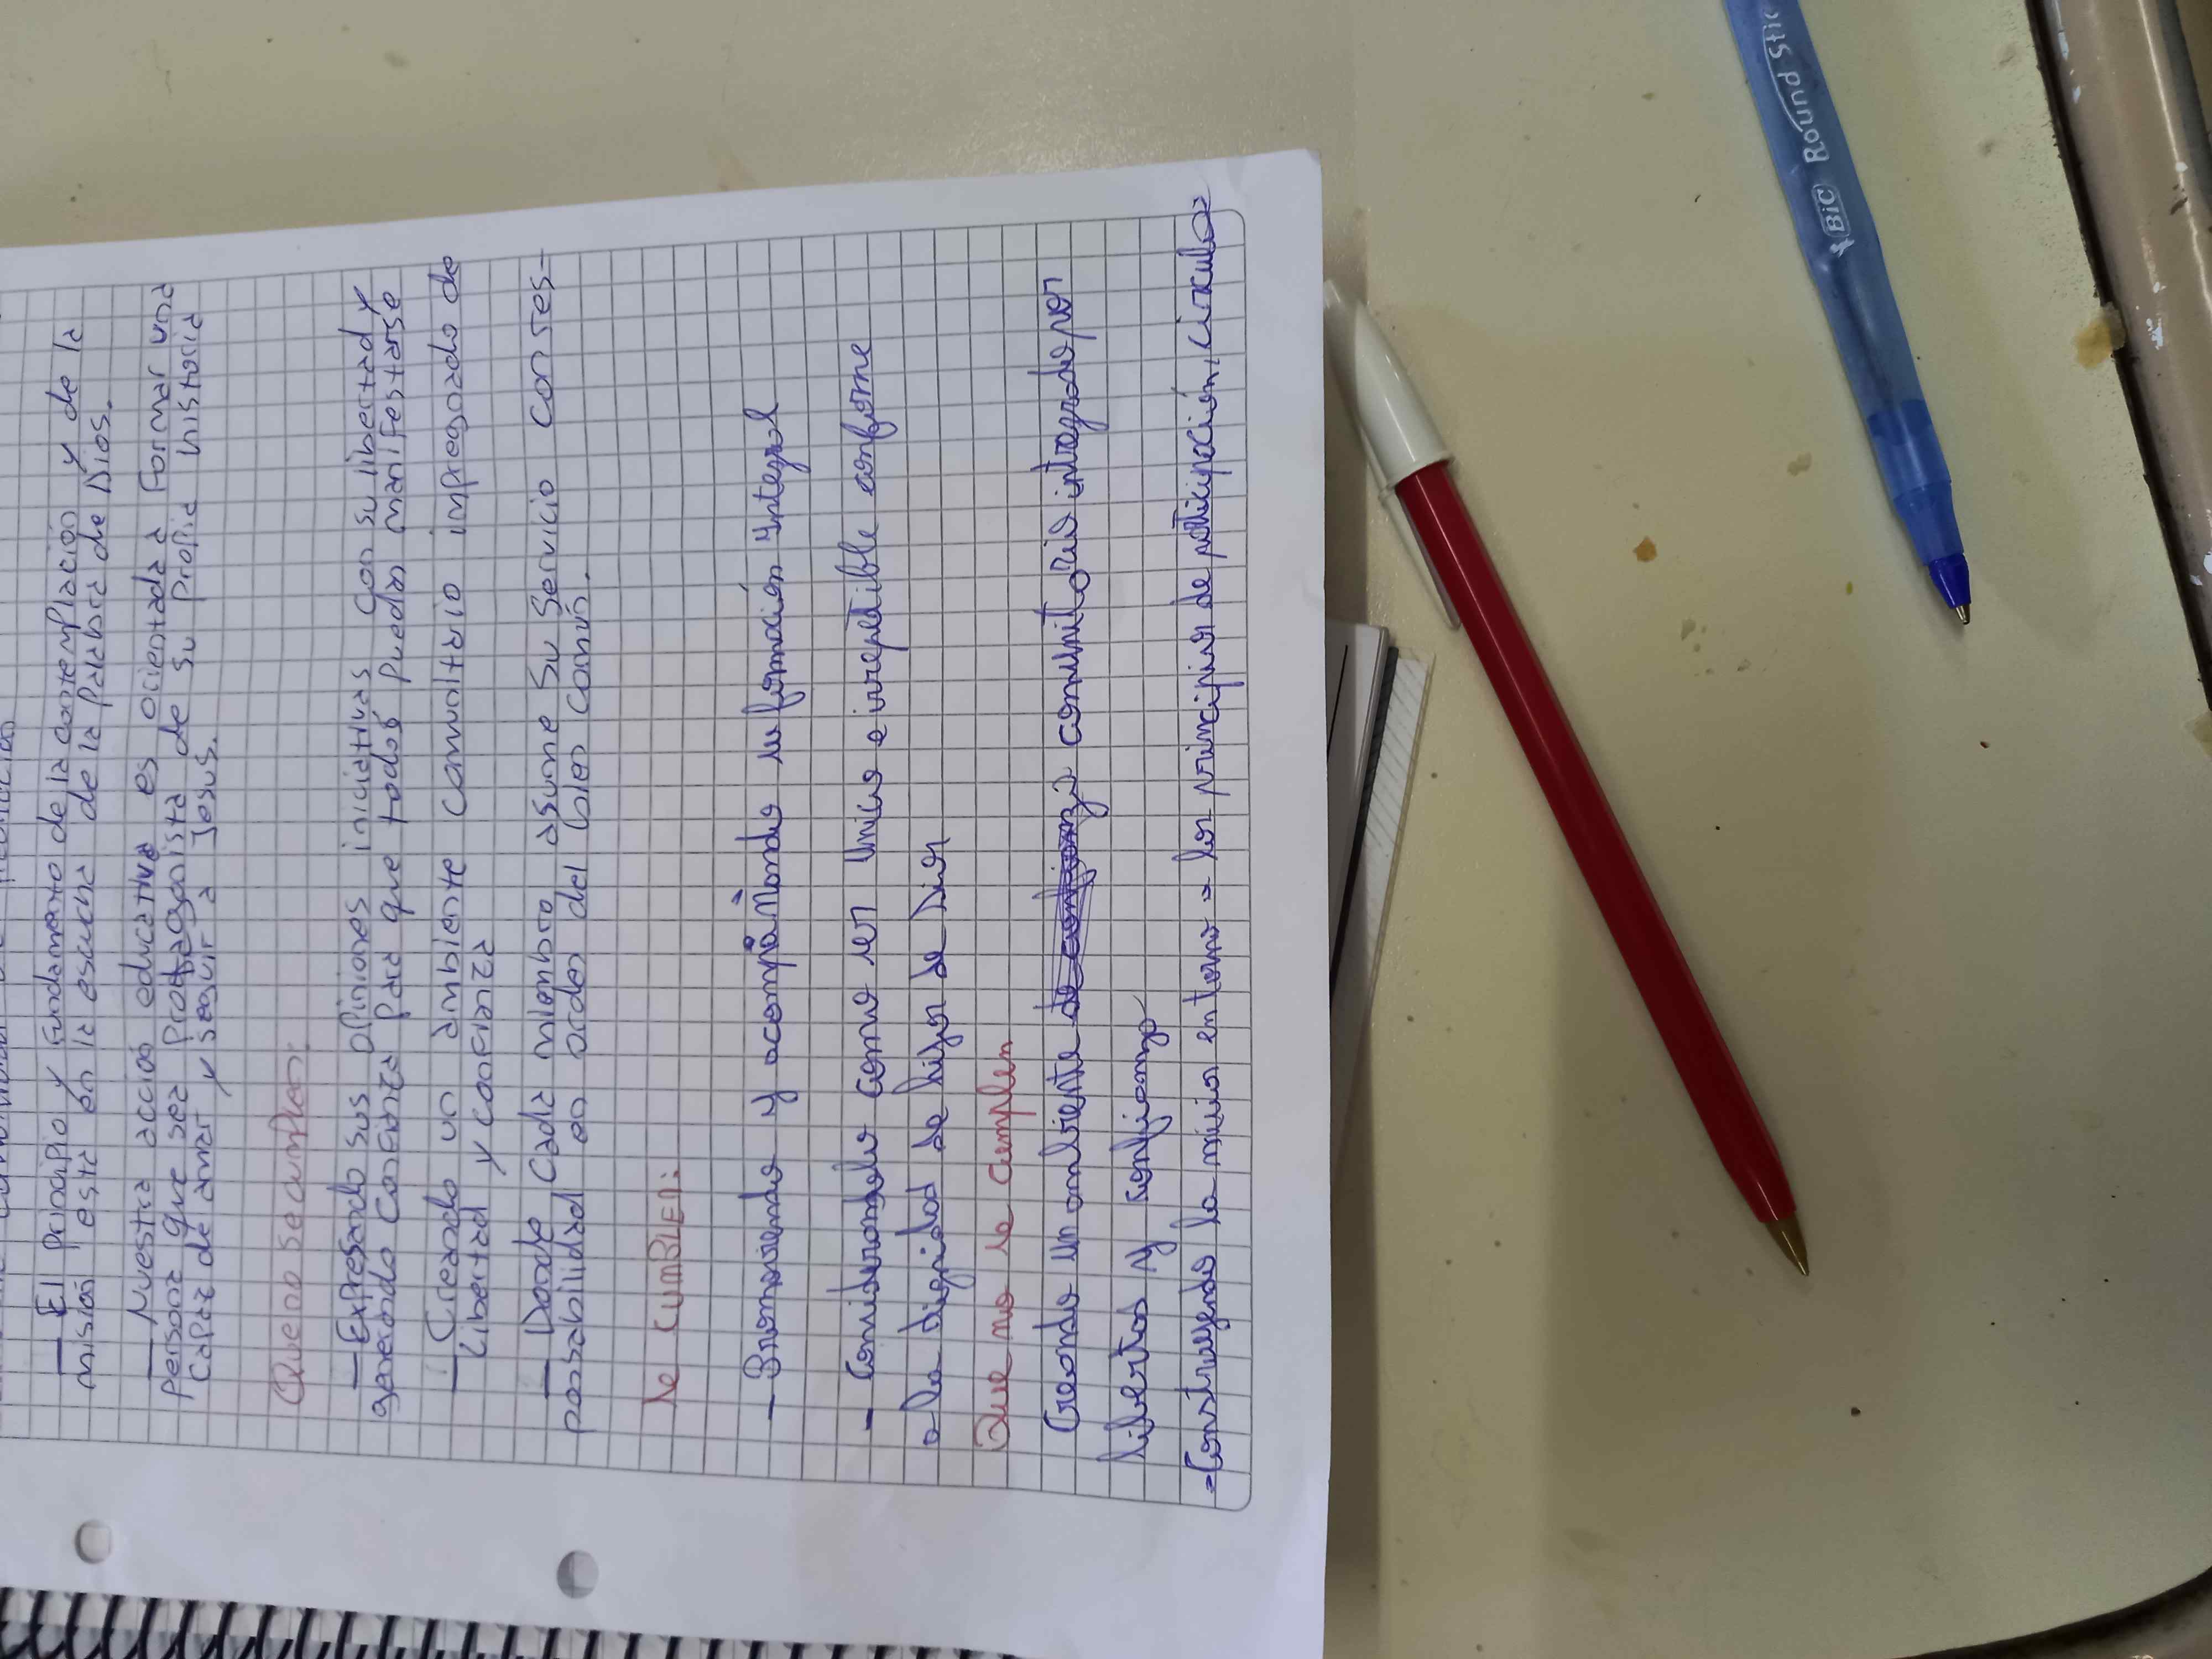 — El principio y fundamento de la contemplación y de la
misión esta en la escucha de la Palabra de Dios.
— Nuestra acción educativa es orientada a Formar una
persona que sea protagonista de su propia historia
capaz de amar y seguir a Jesus.
Que no se cumplen:
— Expresando sus opiniones iniciativas con su libertad y
generando confianza para que todos puedan manifestarse
— Creando un ambiente comunitario impregnado de
Libertad y confianza
— Donde cada miembro asume su servicio corres-
ponsabilidad en orden del bien común.
Se CUMPLEN:
— Promoviendo y acompañando su formación integral
— Considerandolo como ser Unico e irrepetible conforme
a la dignidad de hijos de Dios
Que no se cumplen
Creando un ambiente de confianza comunitario integrado por
libertad y confianza
- Construyendo la misión en torno a los principios de participación, circulo
BIC Round Stic